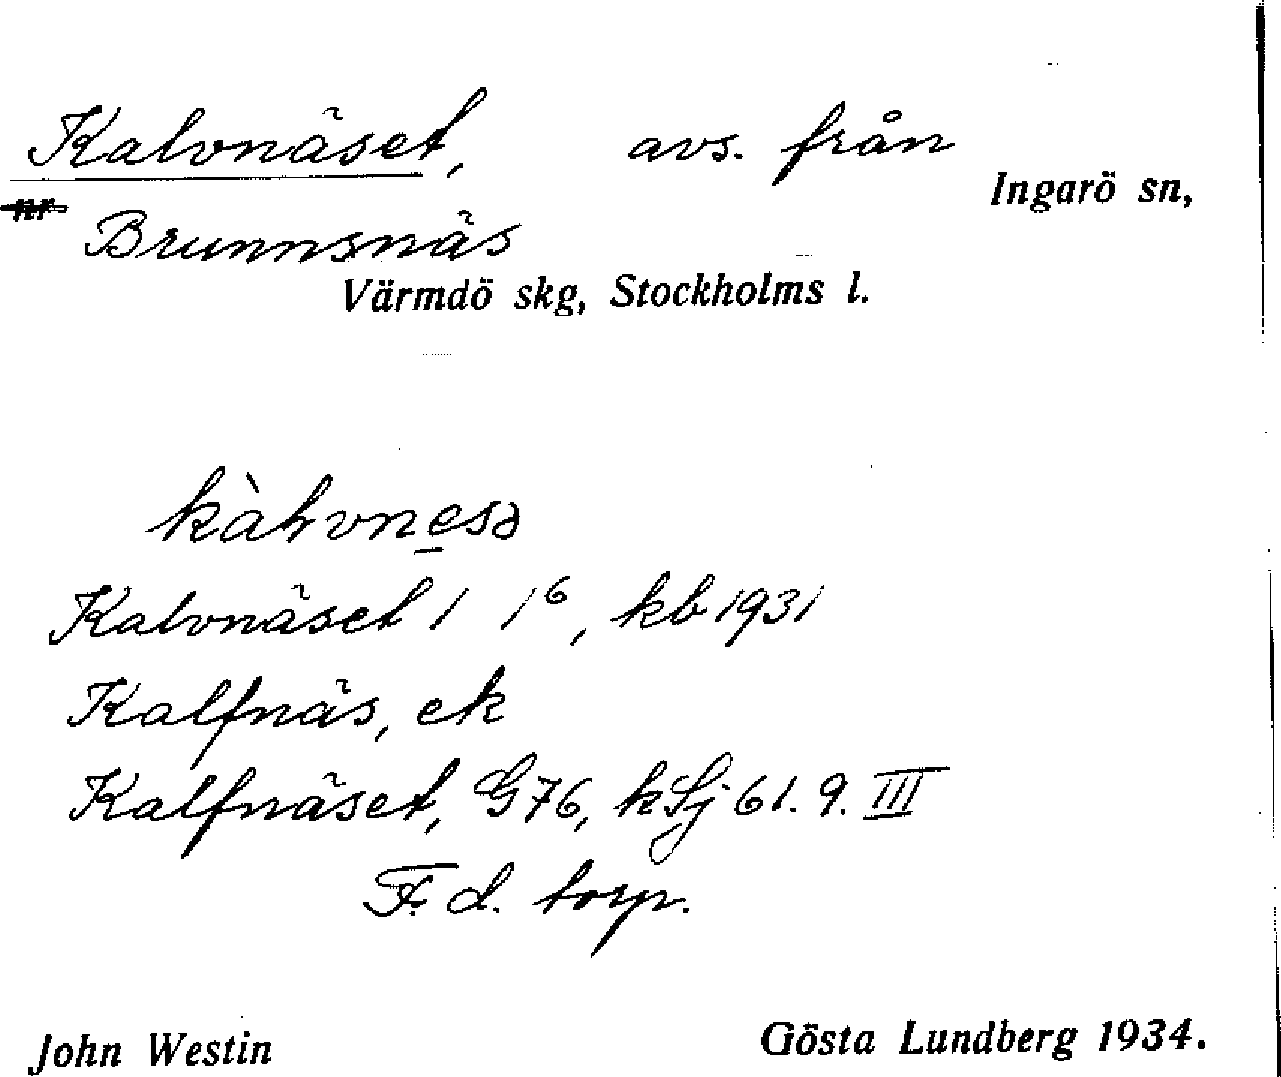 Kalvnäset, avs. från
Ingarö sn,
nr
Brunnsnäs
Värmdö skg, Stockholms l.
Kalvnäset 1 1⁶, kb 1931
Kalfnäs, ek
Kalfnäset, G76, kSj 61. 9. III
F. d. torp.
John Westin Gösta Lundberg 1934.